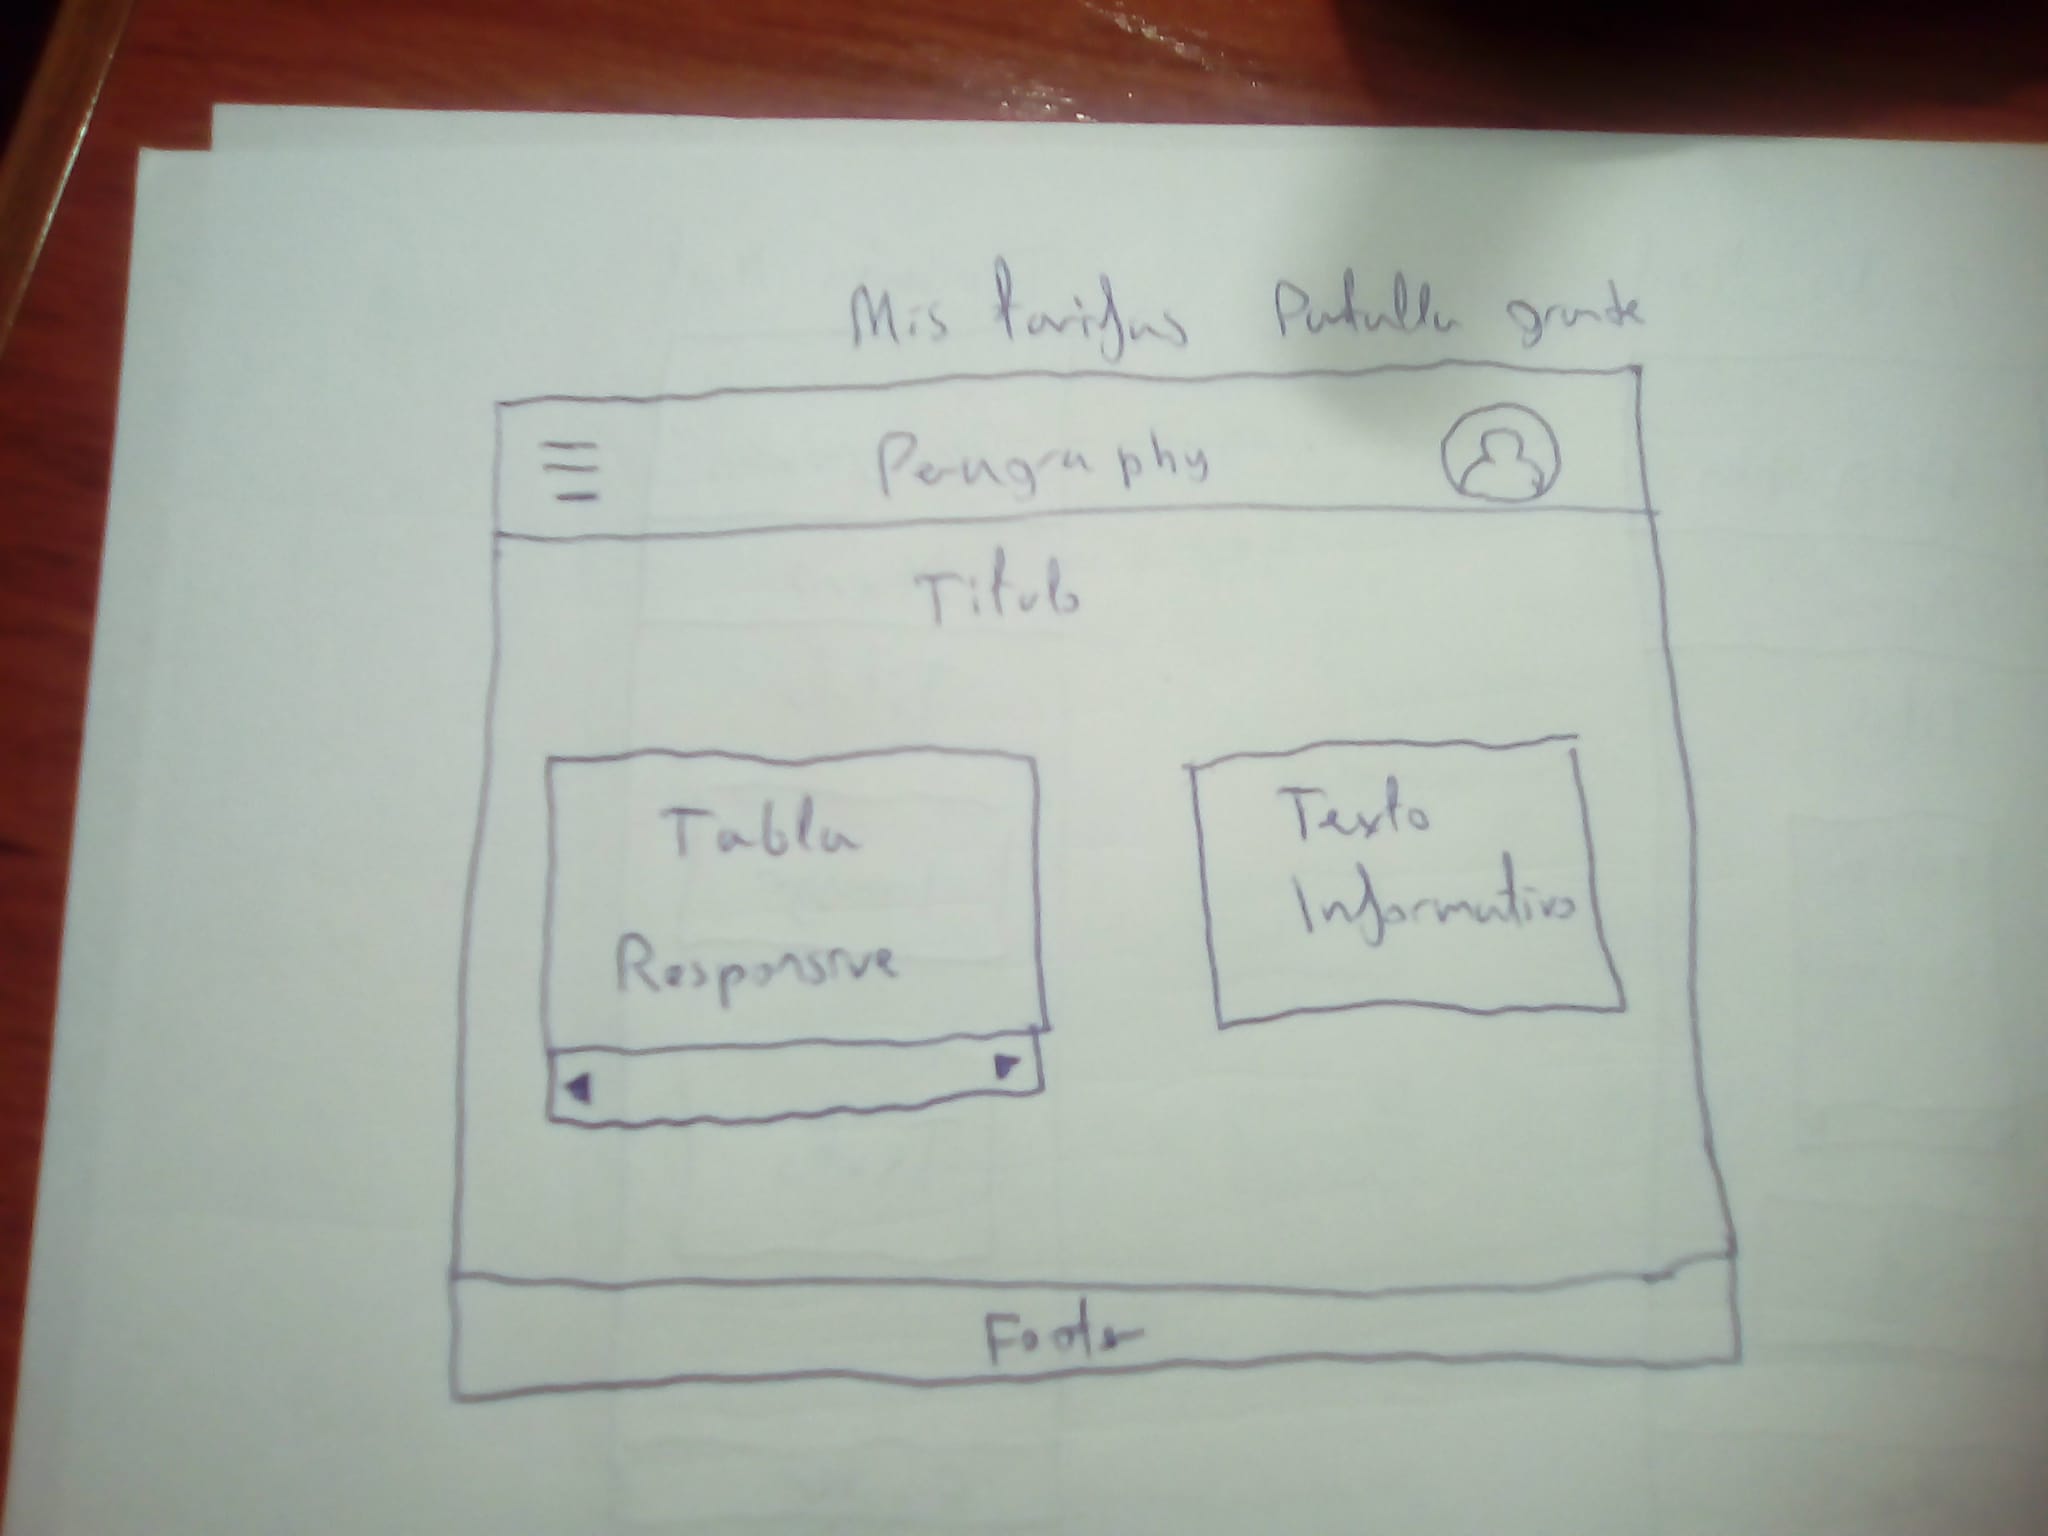 Mis tarifas Patalla grande
Pengraphy
Titulo
Tabla
Responsive
Texto
Informativo
Footer